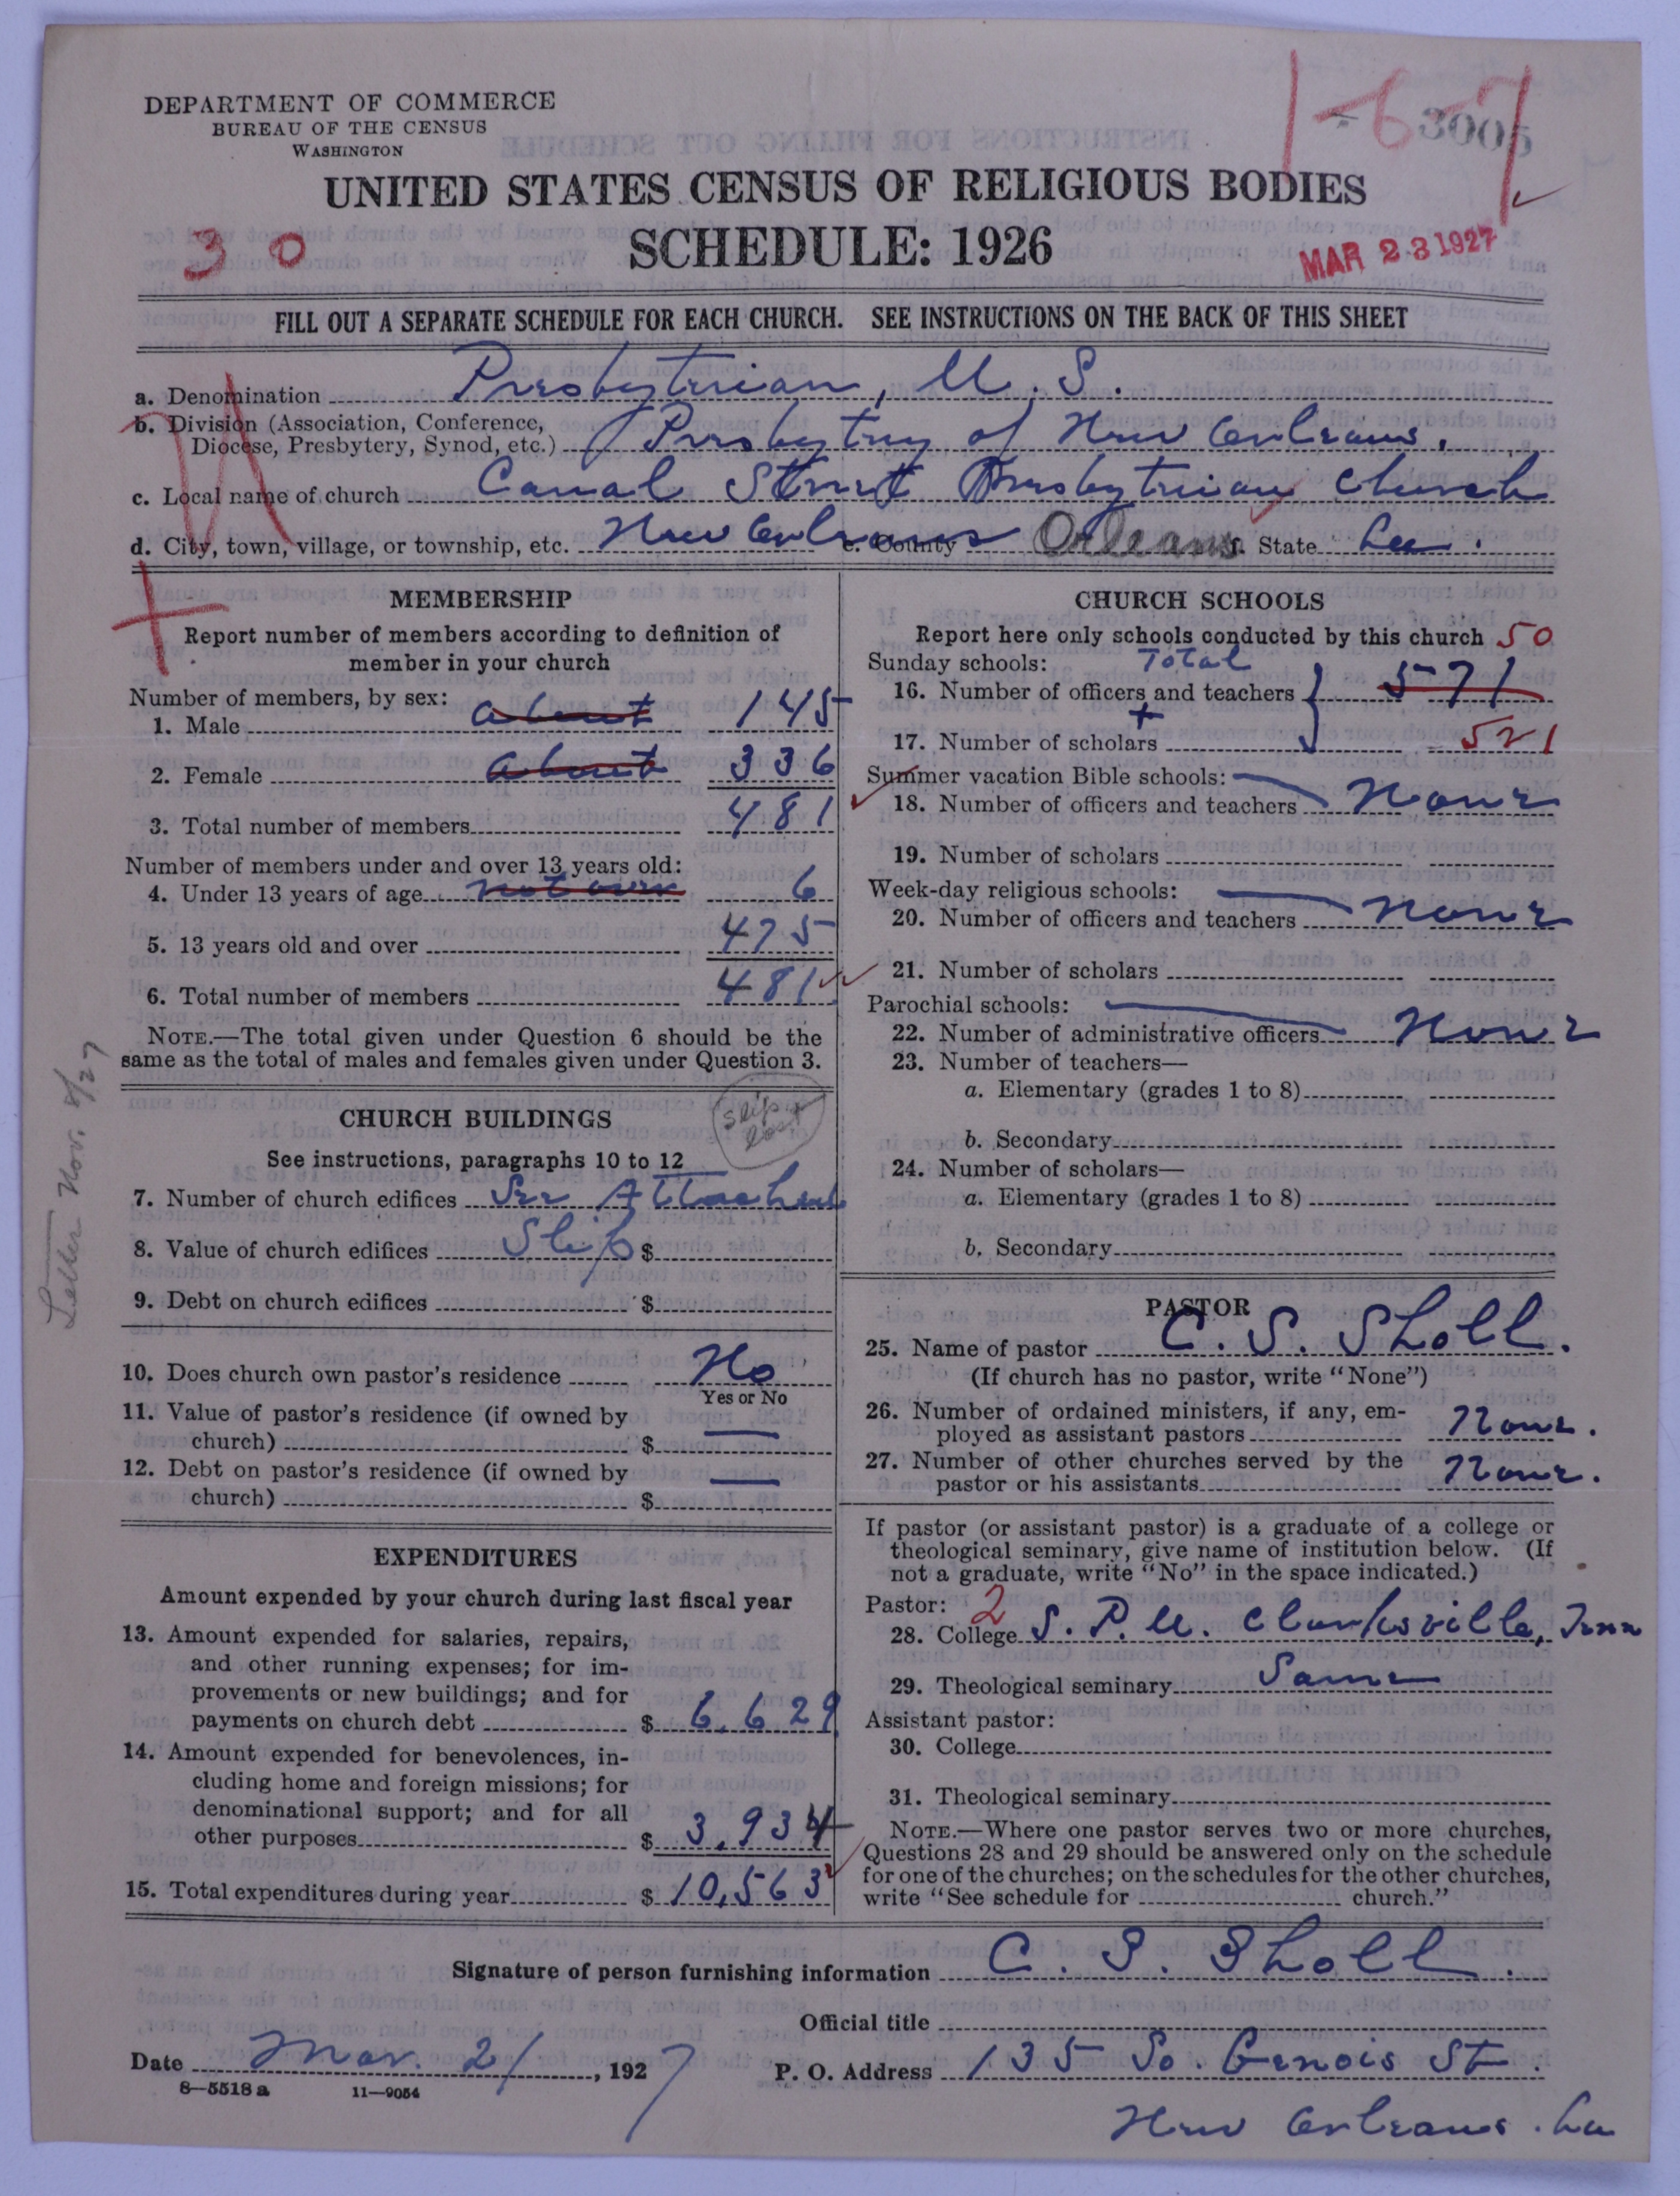 DEPARTMENT OF COMMERCE
BUREAU OF THE CENSUS
WASHINGTON
1-6-7
3005
UNITED STATES CENSUS OF RELIGIOUS BODIES
SCHEDULE: 1926
30
MAR 23 1927
FILL OUT A SEPARATE SCHEDULE FOR EACH CHURCH. SEE INSTRUCTIONS ON THE BACK OF THIS SHEET
a. Denomination Presbyterian, U. S.
b. Division (Association, Conference,
Diocese, Presbytery, Synod, etc.) Presbytery of New Orleans.
c. Local name of church Canal Street Presbyterian Church
d. City, town, village, or township, etc. New Orleans e. County Orleans f. State La.
MEMBERSHIP
Report number of members according to definition of
member in your church
Number of members, by sex:
1. Male about 145
2. Female about 336
3. Total number of members 481
Number of members under and over 13 years old:
4. Under 13 years of age 6
5. 13 years old and over 475
6. Total number of members 481
NOTE.—The total given under Question 6 should be the
same as the total of males and females given under Question 3.
Letter Nov. 8/27
CHURCH BUILDINGS
slip lost
See instructions, paragraphs 10 to 12
7. Number of church edifices See Attached
8. Value of church edifices Slip $
9. Debt on church edifices $
10. Does church own pastor's residence No
Yes or No
11. Value of pastor's residence (if owned by
church) $ —
12. Debt on pastor's residence (if owned by
church) $ —
EXPENDITURES
Amount expended by your church during last fiscal year
13. Amount expended for salaries, repairs,
and other running expenses; for im-
provements or new buildings; and for
payments on church debt $ 6,629
14. Amount expended for benevolences, in-
cluding home and foreign missions; for
denominational support; and for all
other purposes $ 3,934
15. Total expenditures during year $ 10,563
CHURCH SCHOOLS
Report here only schools conducted by this church 50
Sunday schools: Total
16. Number of officers and teachers 571
+
17. Number of scholars 521
Summer vacation Bible schools:
18. Number of officers and teachers None
19. Number of scholars
Week-day religious schools:
20. Number of officers and teachers None
21. Number of scholars
Parochial schools:
22. Number of administrative officers None
23. Number of teachers—
a. Elementary (grades 1 to 8)
b. Secondary
24. Number of scholars—
a. Elementary (grades 1 to 8)
b. Secondary
PASTOR
25. Name of pastor C. S. Sholl.
(If church has no pastor, write "None")
26. Number of ordained ministers, if any, em-
ployed as assistant pastors None.
27. Number of other churches served by the
pastor or his assistants None.
If pastor (or assistant pastor) is a graduate of a college or
theological seminary, give name of institution below. (If
not a graduate, write "No" in the space indicated.)
Pastor: 2
28. College S. P. U. Clarksville, Tenn
29. Theological seminary Same
Assistant pastor:
30. College
31. Theological seminary
NOTE.—Where one pastor serves two or more churches,
Questions 28 and 29 should be answered only on the schedule
for one of the churches; on the schedules for the other churches,
write "See schedule for church."
Signature of person furnishing information C. S. Sholl.
Official title
Date Mar. 21, 1927 P. O. Address 135 So. Genois St.
8—5518a 11—9054
New Orleans. La